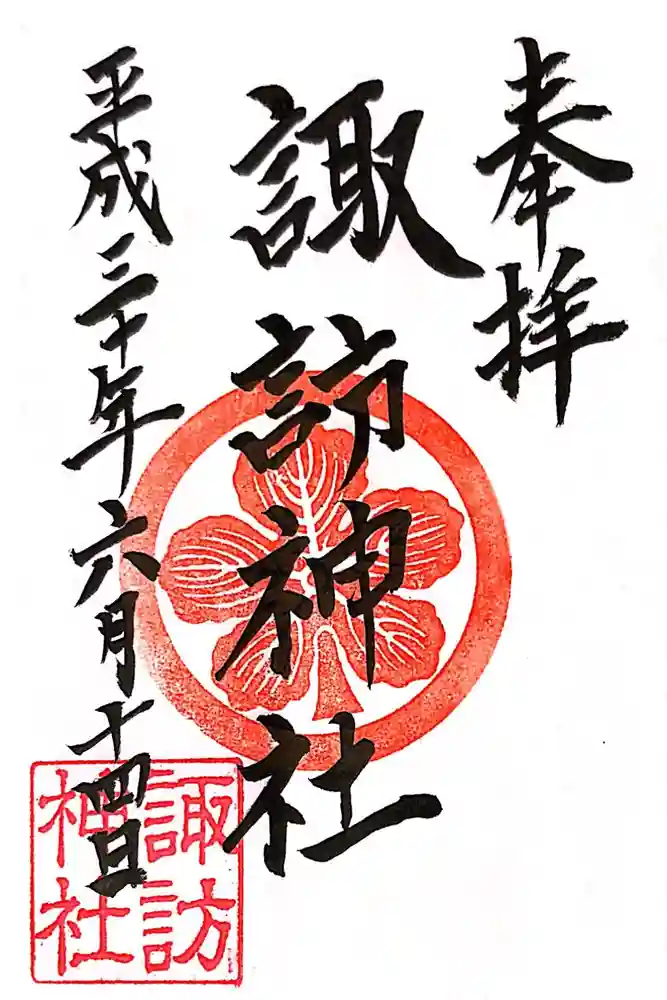 奉拝
諏訪神社
平成三十年六月十四日
諏訪
神社